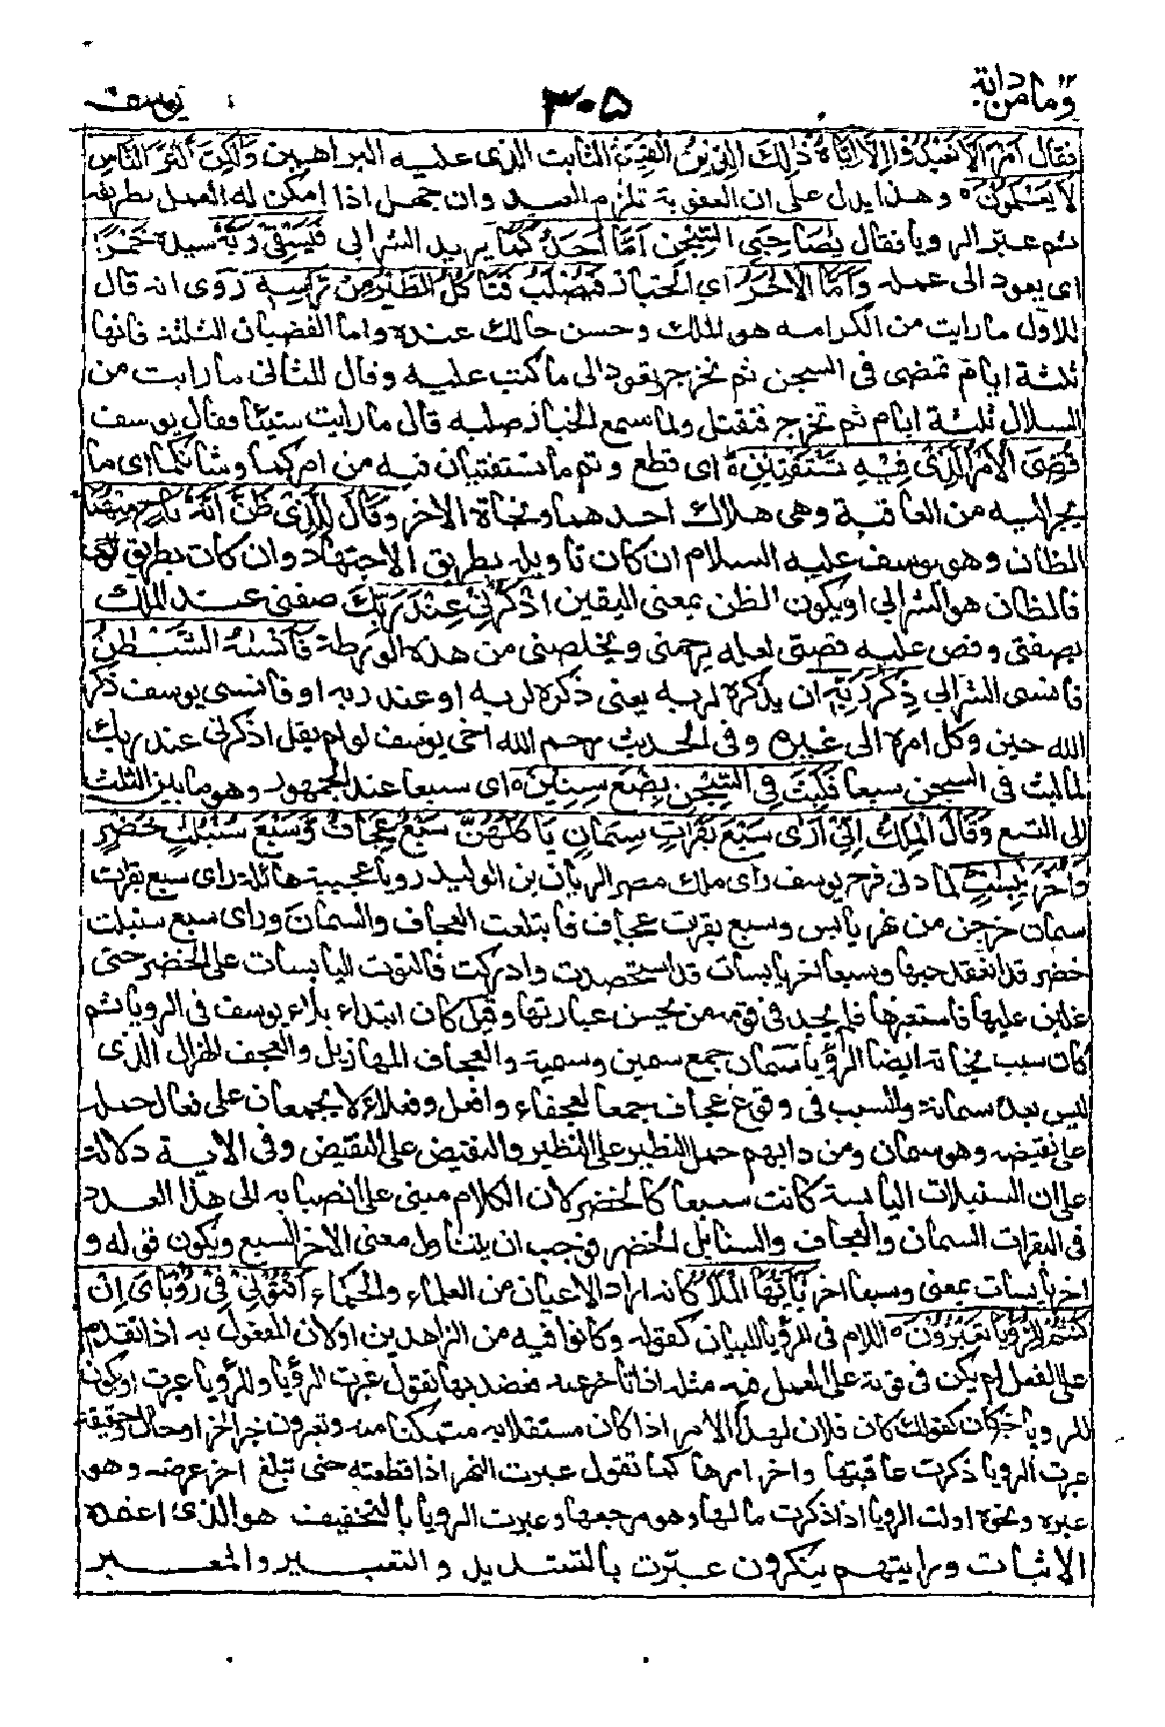 وما من دابة ١٢
٣٠٥
يوسف
فقال اَمَرَ اَلَّا تَعْبُدُوْٓا اِلَّآ اِيَّاهُ ذٰلِكَ الدِّيْنُ الْقَيِّمُ الثابت الذى عليه البراهين وَلٰكِنَّ اَكْثَرَ النَّاسِ
لَا يَعْلَمُوْنَ ٥ وهذا يدل على ان العقوبة تلزم العبد وان جهل اذا امكن له العمل بطريقه
ثم عبّر الرويا فقال يٰصَاحِبَىِ السِّجْنِ اَمَّآ اَحَدُكُمَا يريد الشرابى فَيَسْقِىْ رَبَّهٗ سيده خَمْرًا
اى يعود الى عمله وَاَمَّا الْاٰخَرُ اى الخباز فَيُصْلَبُ فَتَاْكُلُ الطَّيْرُ مِنْ رَّاْسِهٖ روى انه قال
للاول ما رايت من الكرامه هو الملك وحسن حالك عنده واما القضبان الثلثة فانها
ثلثة ايام تمضى فى السجن ثم تخرج وتعود الى ما كنت عليه وقال للثانى ما رايت من
السلال ثلثة ايام ثم تخرج فتقتل ولما سمع الخباز صلبه قال ما رايت شيئا فقال يوسف
قُضِىَ الْاَمْرُ الَّذِىْ فِيْهِ تَسْتَفْتِيٰنِ ٥ اى قطع وتم ما تستفتيان فيه من امركما وشانكما اى ما
يجر اليه من العاقبة وهى هلاك احدهما ونجاة الاخر وَقَالَ لِلَّذِىْ ظَنَّ اَنَّهٗ نَاجٍ مِّنْهُمَا
الظان وهو يوسف عليه السلام ان كان تاويله بطريق الاجتهاد وان كان بطريق الوحى
فالظان هو الشرابى او يكون الظن بمعنى اليقين اذْكُرْنِىْ عِنْدَ رَبِّكَ صفنى عند الملك
بصفتى وقص عليه قصتى لعله يرحمنى ويخلصنى من هذه الورطة فَاَنْسٰىهُ الشَّيْطٰنُ
فانسى الشرابى ذِكْرَ رَبِّهٖ ان يذكره لربه يعنى ذكره لربه او عند ربه او فانسى يوسف ذكر
الله حين وكل امره الى غيره وفى الحديث رحم الله اخى يوسف لو لم يقل اذكرنى عند ربك
لما لبث فى السجن سبعا فَلَبِثَ فِى السِّجْنِ بِضْعَ سِنِيْنَ ٥ اى سبعا عند الجمهور وهو ما بين الثلث
الى التسع وَقَالَ الْمَلِكُ اِنِّىْٓ اَرٰى سَبْعَ بَقَرٰتٍ سِمَانٍ يَّاْكُلُهُنَّ سَبْعٌ عِجَافٌ وَّسَبْعَ سُنْۢبُلٰتٍ خُضْرٍ
وَّاُخَرَ يٰبِسٰتٍ لما دنى فرج يوسف راى ملك مصر الريان بن الوليد رويا عجيبة هائلة راى سبع بقرات
سمان خرجن من نهر يابس وسبع بقرت عجاف فابتلعت العجاف والسمان وراى سبع سنبلت
خضر قد انعقد حبها وسبعا اخر يابسات قد استحصدت وادركت فالتوت اليابسات على الخضر حتى
غلبن عليها فاستعبرها فلم يجد فى قومه من يحسن عبارتها وقيل كان ابتداء بلاء يوسف فى الرويا ثم
كان سبب نجاته ايضا الرؤيا سمان جمع سمين وسمينة والعجاف المهازيل والعجف الهزال الذى
ليس بعده سمانة والسبب فى وقوع عجاف جمعا لعجفاء وافعل وفعلاء لا يجمعان على فعال حمله
على نقيضه وهو سمان ومن دابهم حمل النظير على النظير والنقيض على النقيض وفى الاية دلالة
على ان السنبلات اليابسة كانت سبعا كالخضر لان الكلام مبنى على انصبابه الى هذا العدد
فى البقرات السمان والعجاف والسنابل الخضر فوجب ان يتناول معنى الاخر السبع ويكون قوله و
اخر يابسات بمعنى وسبعا اخر يٰٓاَيُّهَا الْمَلَاُ كانه اراد الاعيان من العلماء والحكماء اَفْتُوْنِىْ فِىْ رُءْيَاىَ اِنْ
كُنْتُمْ لِلرُّءْيَا تَعْبُرُوْنَ ٥ اللام فى الرؤيا للبيان كقوله وكانوا فيه من الزاهدين او لان المفعول به اذا تقدم
على الفعل لم يكن فى قوته على العمل فيه مثله اذا تاخر عنه فعضد بها تقول عبرت الرؤيا وللرؤيا عبرت او يكون
للرويا خبر كان كقولك كان فلان لهذا الامر اذا كان مستقلا به متمكنا منه وتعبرون خبر اخر او حال وحقيقة
عبرت الرويا ذكرت عاقبتها واخر امرها كما تقول عبرت النهر اذا قطعته حتى تبلغ اخر عرضه وهو
عبره ونحوه اولت الرويا اذا ذكرت مالها وهو مرجعها وعبرت الرويا بالتخفيف هو الذى اعتمده
الاثبات ورايتهم ينكرون عبّرت بالتشديد والتعبير والمعبر